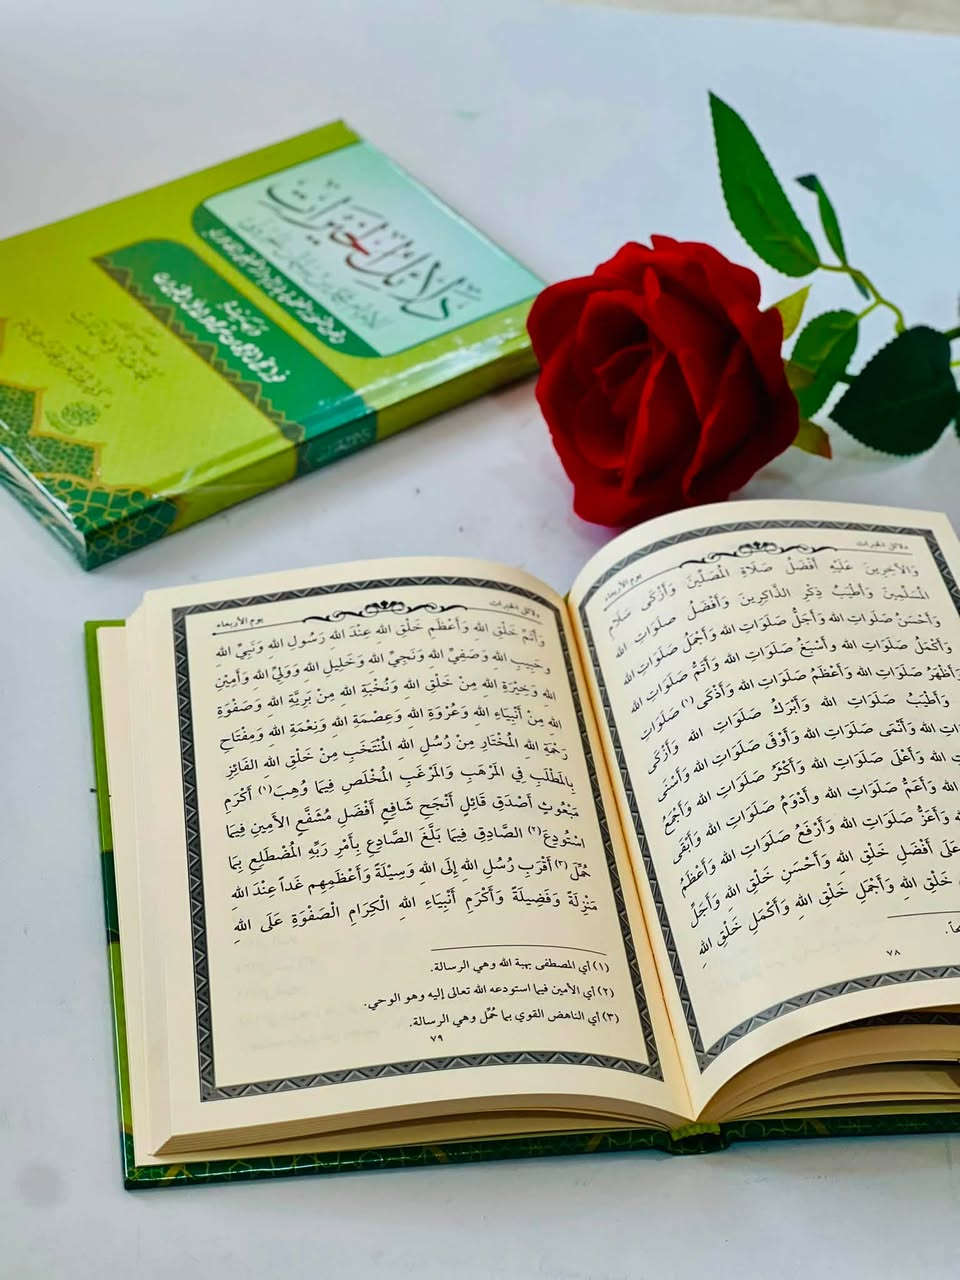 دلائل الخيرات
دلائل الخيرات
يوم الأربعاء
وَالآخِرِينَ عَلَيْهِ أَفْضَلُ صَلَاةِ الْمُصَلِّينَ وَأَزْكَى سَلَامِ
الْمُسَلِّمِينَ وَأَطْيَبُ ذِكْرِ الذَّاكِرِينَ وَأَفْضَلُ صَلَوَاتِ الله
وَأَحْسَنُ صَلَوَاتِ الله وَأَجَلُّ صَلَوَاتِ الله وَأَجْمَلُ صَلَوَاتِ الله
وَأَكْمَلُ صَلَوَاتِ الله وَأَسْبَغُ صَلَوَاتِ الله وَأَتَمُّ صَلَوَاتِ الله
وَأَظْهَرُ صَلَوَاتِ الله وَأَعْظَمُ صَلَوَاتِ الله وَأَذْكَى (١) صَلَوَاتِ
وَأَطْيَبُ صَلَوَاتِ الله وَأَبْرَكُ صَلَوَاتِ الله وَأَزْكَى
الله وَأَنْمَى صَلَوَاتِ الله وَأَوْفَى صَلَوَاتِ الله وَأَسْنَى
الله وَأَعْلَى صَلَوَاتِ الله وَأَكْثَرُ صَلَوَاتِ الله وَأَجْمَعُ
الله وَأَعَمُّ صَلَوَاتِ الله وَأَدْوَمُ صَلَوَاتِ الله وَأَبْقَى
وَأَعَزُّ صَلَوَاتِ الله وَأَرْفَعُ صَلَوَاتِ الله وَأَعْظَمُ
عَلَى أَفْضَلِ خَلْقِ الله وَأَحْسَنِ خَلْقِ الله وَأَجَلِّ
خَلْقِ اللهِ وَأَجْمَلِ خَلْقِ اللهِ وَأَكْمَلِ خَلْقِ اللهِ
٧٨
دلائل الخيرات
يوم الأربعاء
وَأَتَمِّ خَلْقِ الله وَأَعْظَمِ خَلْقِ اللهِ عِنْدَ اللهِ رَسُولِ اللهِ وَنَبِيِّ اللهِ
وَحَبِيبِ الله وَصَفِيِّ اللهِ وَنَجِيِّ الله وَخَلِيلِ اللهِ وَوَلِيِّ اللهِ وَأَمِينِ
اللهِ وَخِيرَةِ اللهِ مِنْ خَلْقِ اللهِ وَنُخْبَةِ اللهِ مِنْ بَرِيَّةِ اللهِ وَصَفْوَةِ
اللهِ مِنْ أَنْبِيَاءِ اللهِ وَعُرْوَةِ اللهِ وَعِصْمَةِ اللهِ وَنِعْمَةِ اللهِ وَمِفْتَاحِ
رَحْمَةِ اللهِ الْمُخْتَارِ مِنْ رُسُلِ اللهِ الْمُنْتَخَبِ مِنْ خَلْقِ اللهِ الْفَائِزِ
بِالْمَطْلَبِ فِي الْمَرْهَبِ وَالْمَرْغَبِ الْمُخْلَصِ فِيمَا وُهِبَ(١) أَكْرَمِ
مَبْعُوثٍ أَصْدَقِ قَائِلٍ أَنْجَحِ شَافِعٍ أَفْضَلِ مُشَفَّعٍ الأَمِينِ فِيمَا
اسْتُودِعَ(٢) الصَّادِقِ فِيمَا بَلَّغَ الصَّادِعِ بِأَمْرِ رَبِّهِ الْمُضْطَلِعِ بِمَا
حُمِّلَ(٣) أَقْرَبِ رُسُلِ اللهِ إِلَى اللهِ وَسِيلَةً وَأَعْظَمِهِم غَداً عِنْدَ اللهِ
مَنْزِلَةً وَفَضِيلَةً وَأَكْرَمِ أَنْبِيَاءِ اللهِ الْكِرَامِ الْصَّفْوَةِ عَلَى اللهِ
(١) أي المصطفى بهبة الله وهي الرسالة.
(٢) أي الأمين فيما استودعه الله تعالى إليه وهو الوحي.
(٣) أي الناهض القوي بما حُمِّل وهي الرسالة.
٧٩